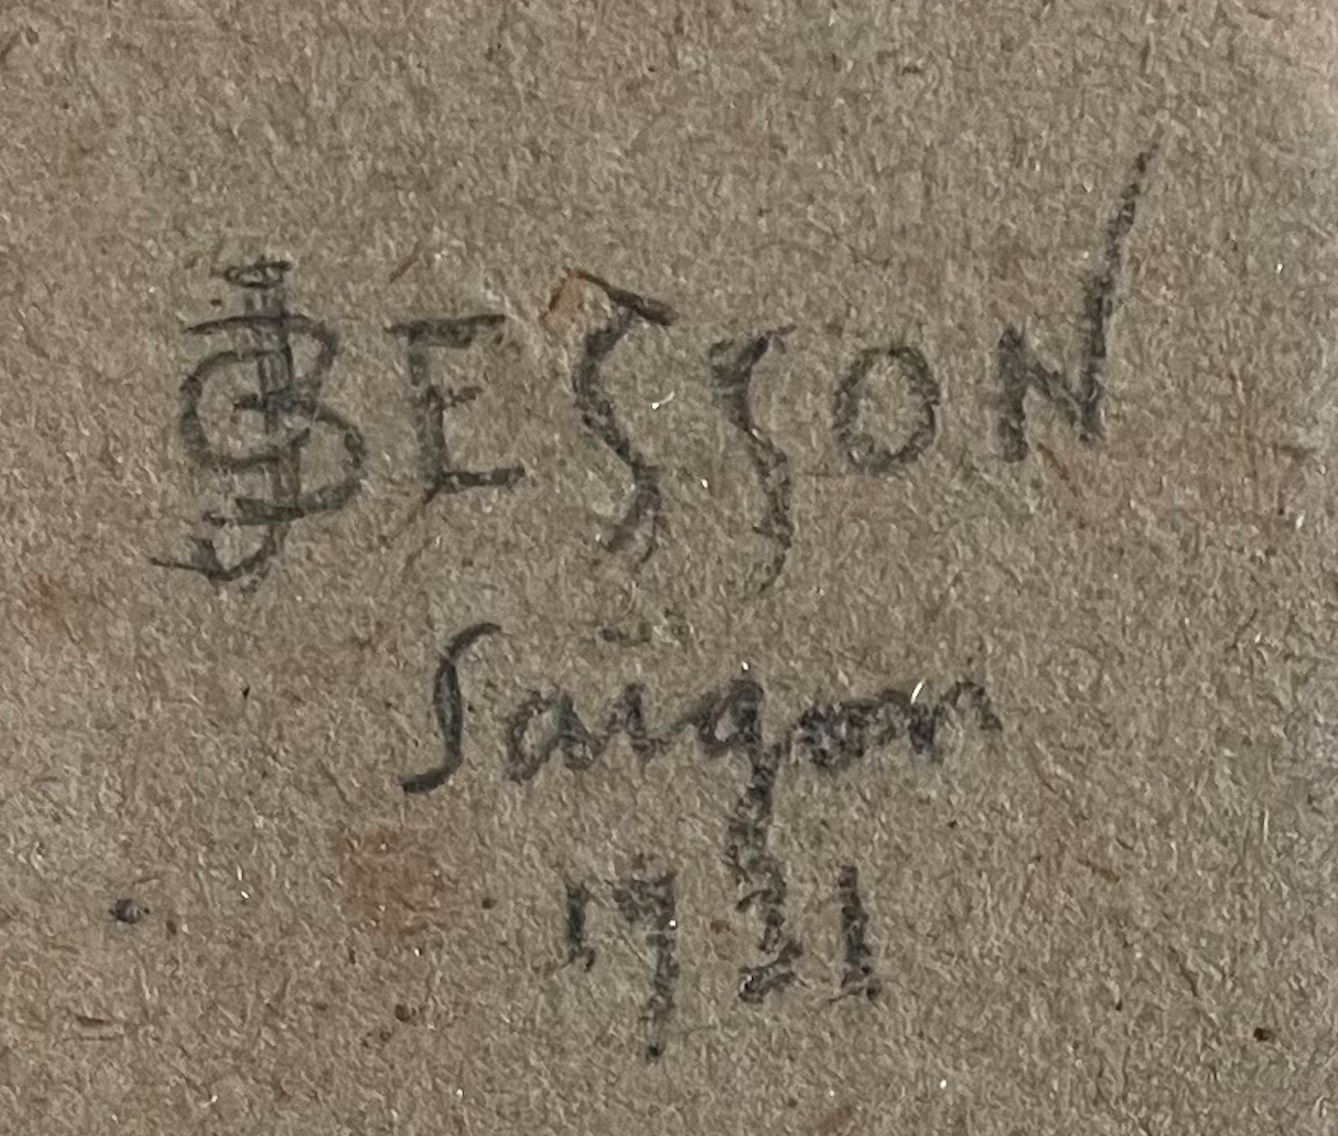 BESSON
Saigon
1931